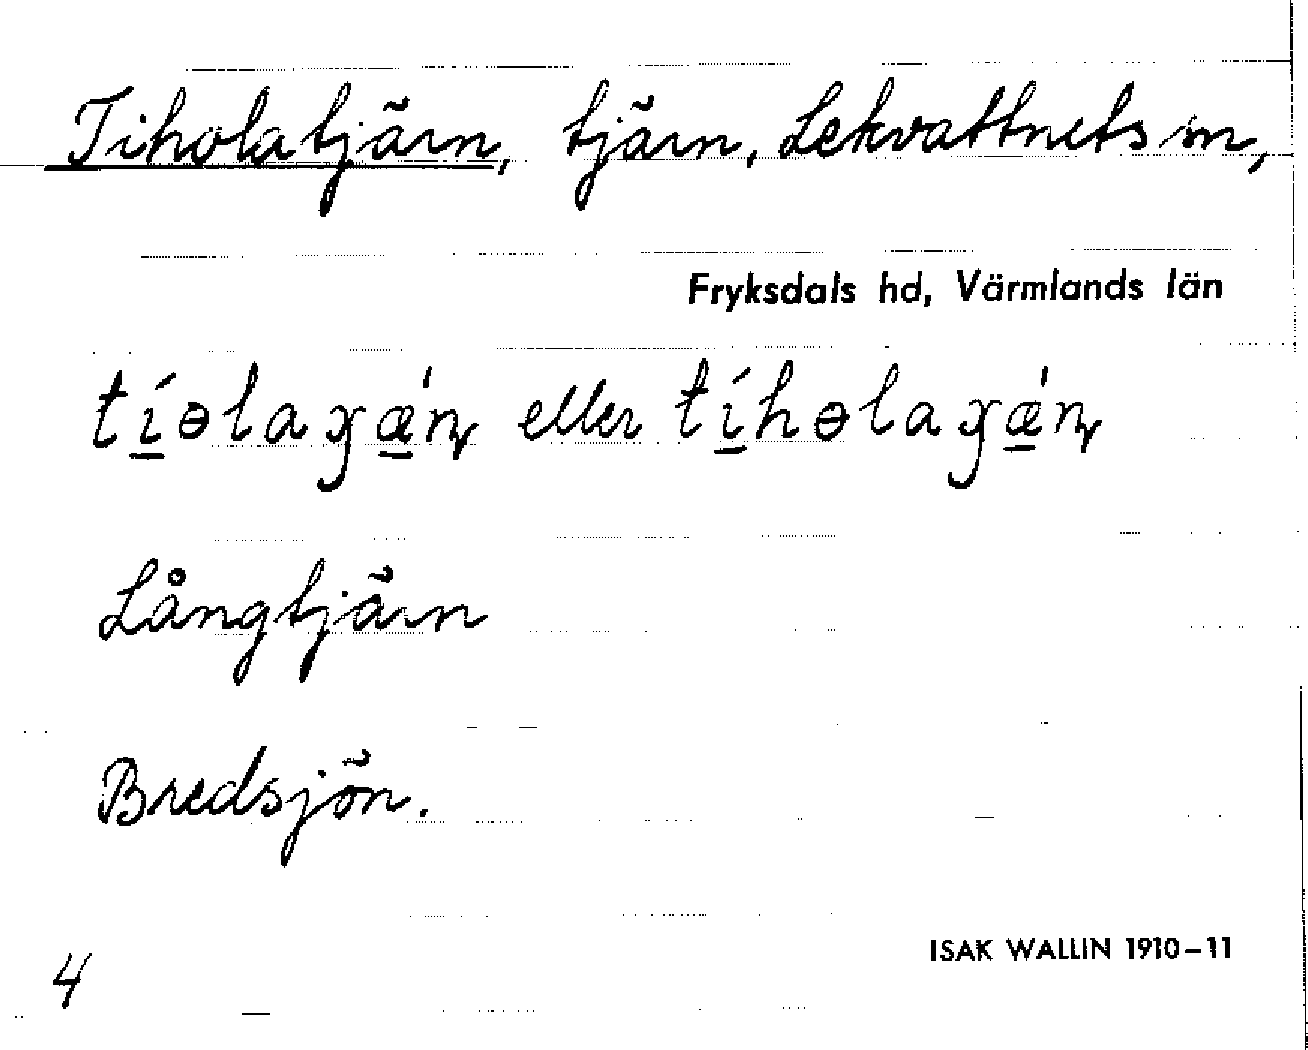 Tiholatjärn, tjärn, Lekvattnets sn,
Fryksdals hd, Värmlands län
tíɵlaɣǽn̨ eller tíhɵlaɣǽn̨
Långtjärn
Bredsjön.
ISAK WALLIN 1910–11
4